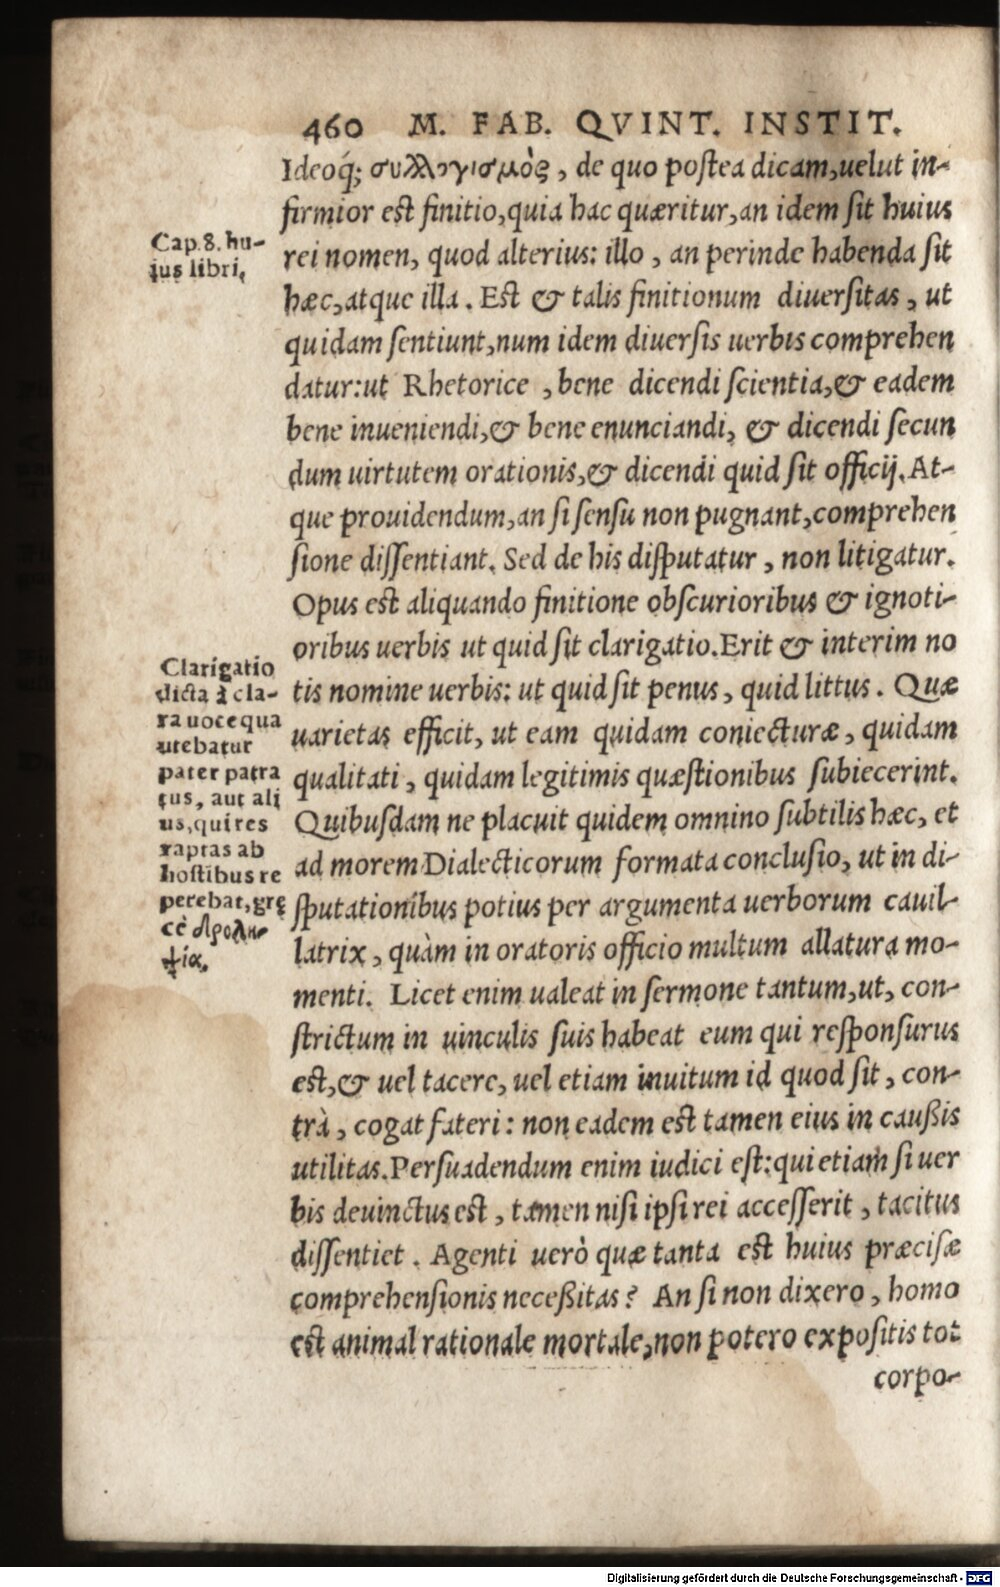 460 M. FAB. QVINT. INSTIT.
Ideoq́; συλλογισμὸς, de quo postea dicam, uelut in-
firmior est finitio, quia hac quæritur, an idem sit huius
rei nomen, quod alterius: illo, an perinde habenda sit
hæc, atque illa. Est & talis finitionum diuersitas, ut
quidam sentiunt, num idem diuersis uerbis comprehen
datur: ut Rhetorice, bene dicendi scientia, & eadem
bene inueniendi, & bene enunciandi, & dicendi secun
dum uirtutem orationis, & dicendi quid sit officij. At-
que prouidendum, an si sensu non pugnant, comprehen
sione dissentiant. Sed de his disputatur, non litigatur.
Opus est aliquando finitione obscurioribus & ignoti-
oribus uerbis ut quid sit clarigatio. Erit & interim no
tis nomine uerbis: ut quid sit penus, quid littus. Quæ
uarietas efficit, ut eam quidam coniecturæ, quidam
qualitati, quidam legitimis quæstionibus subiecerint.
Quibusdam ne placuit quidem omnino subtilis hæc, et
ad morem Dialecticorum formata conclusio, ut in di-
sputationibus potius per argumenta uerborum cauil-
latrix, quàm in oratoris officio multum allatura mo-
menti. Licet enim ualeat in sermone tantum, ut, con-
strictum in uinculis suis habeat eum qui responsurus
est, & uel tacere, uel etiam inuitum id quod sit, con-
trà, cogat fateri: non eadem est tamen eius in caußis
utilitas. Persuadendum enim iudici est: qui etiam si uer
bis deuinctus est, tamen nisi ipsi rei accesserit, tacitus
dissentiet. Agenti uerò quæ tanta est huius præcisæ
comprehensionis neceßitas? An si non dixero, homo
est animal rationale mortale, non potero expositis tot
corpo-
Cap. 8. hu-
ius libri,
Clarigatio
dicta à cla-
ra uoce qua
utebatur
pater patra
tus, aut ali
us, qui res
raptas ab
hostibus re
peterebat, gręcè
Digitalisierung gefördert durch die Deutsche Forschungsgemeinschaft - DFG